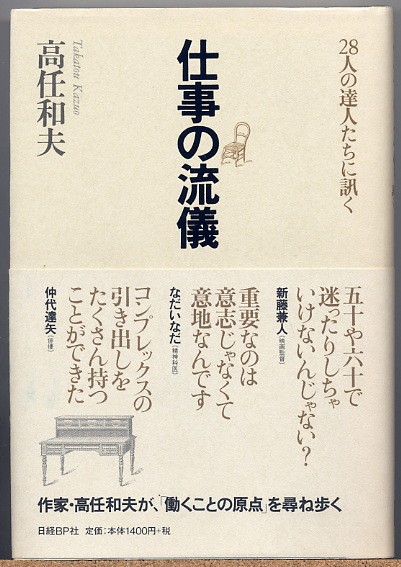 28人の達人たちに訊く
仕事の流儀
Takatou Kazuo
高任和夫
五十や六十で
迷ったりしちゃ
いけないんじゃない?
新藤兼人[映画監督]
重要なのは
意志じゃなくて
意地なんです
なだいなだ[精神科医]
コンプレックスの
引き出しを
たくさん持つ
ことができた
仲代達矢[俳優]
作家・高任和夫が、「働くことの原点」を尋ね歩く
日経BP社 定価:本体1400円+税